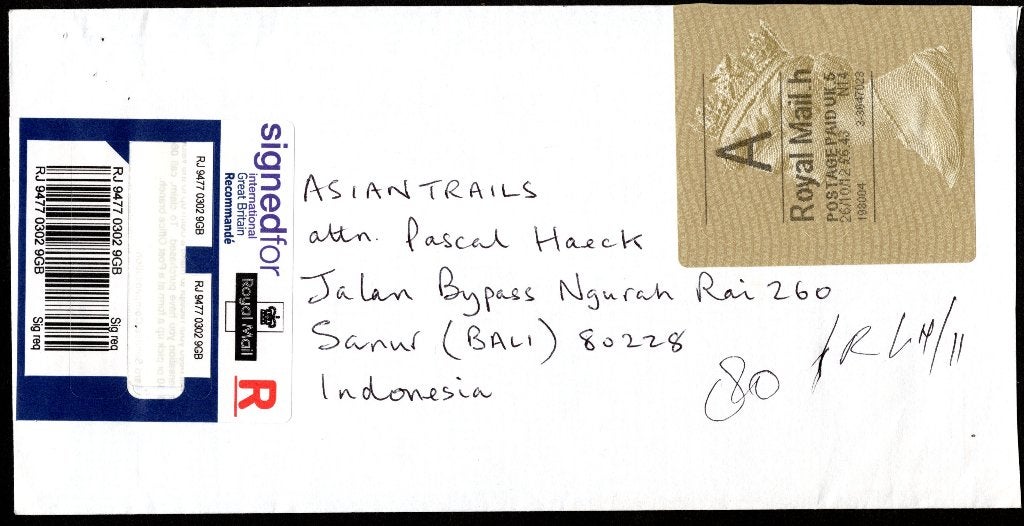 signedfor
international
Great Britain
Recommandé
Royal Mail
R
RJ 9477 0302 9GB
RJ 9477 0302 9GB
RJ 9477 0302 9GB
Sig req
RJ 9477 0302 9GB
Sig req
A
Royal Mail h
POSTAGE PAID UK S
26/10/12 £6.45 N14
198004 2-3647029
ASIAN TRAILS
attn. Pascal Haeck
Jalan Bypass Ngurah Rai 260
Sanur (BALI) 80228
Indonesia
80